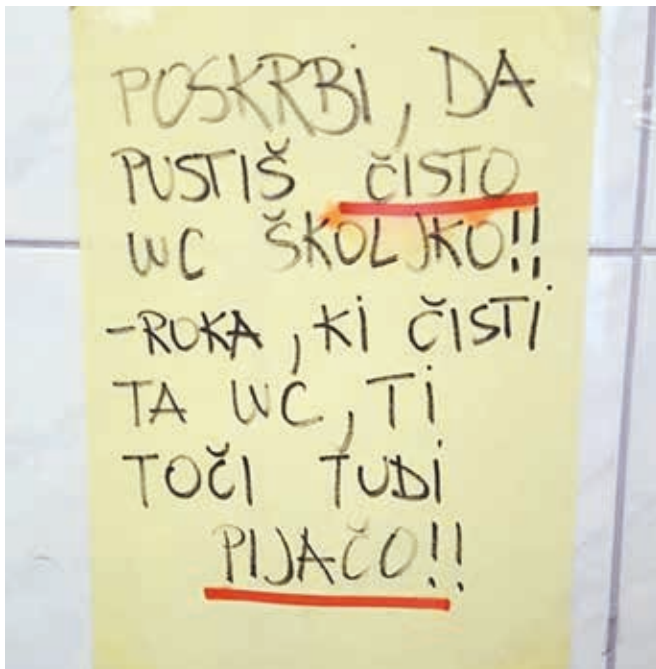 POSKRBi, DA
PUSTIŠ ČISTO
WC ŠKOLJKO!!
-ROKA, Ki ČISTi
TA WC, Ti
TOČI TUDi
PIJAČO!!